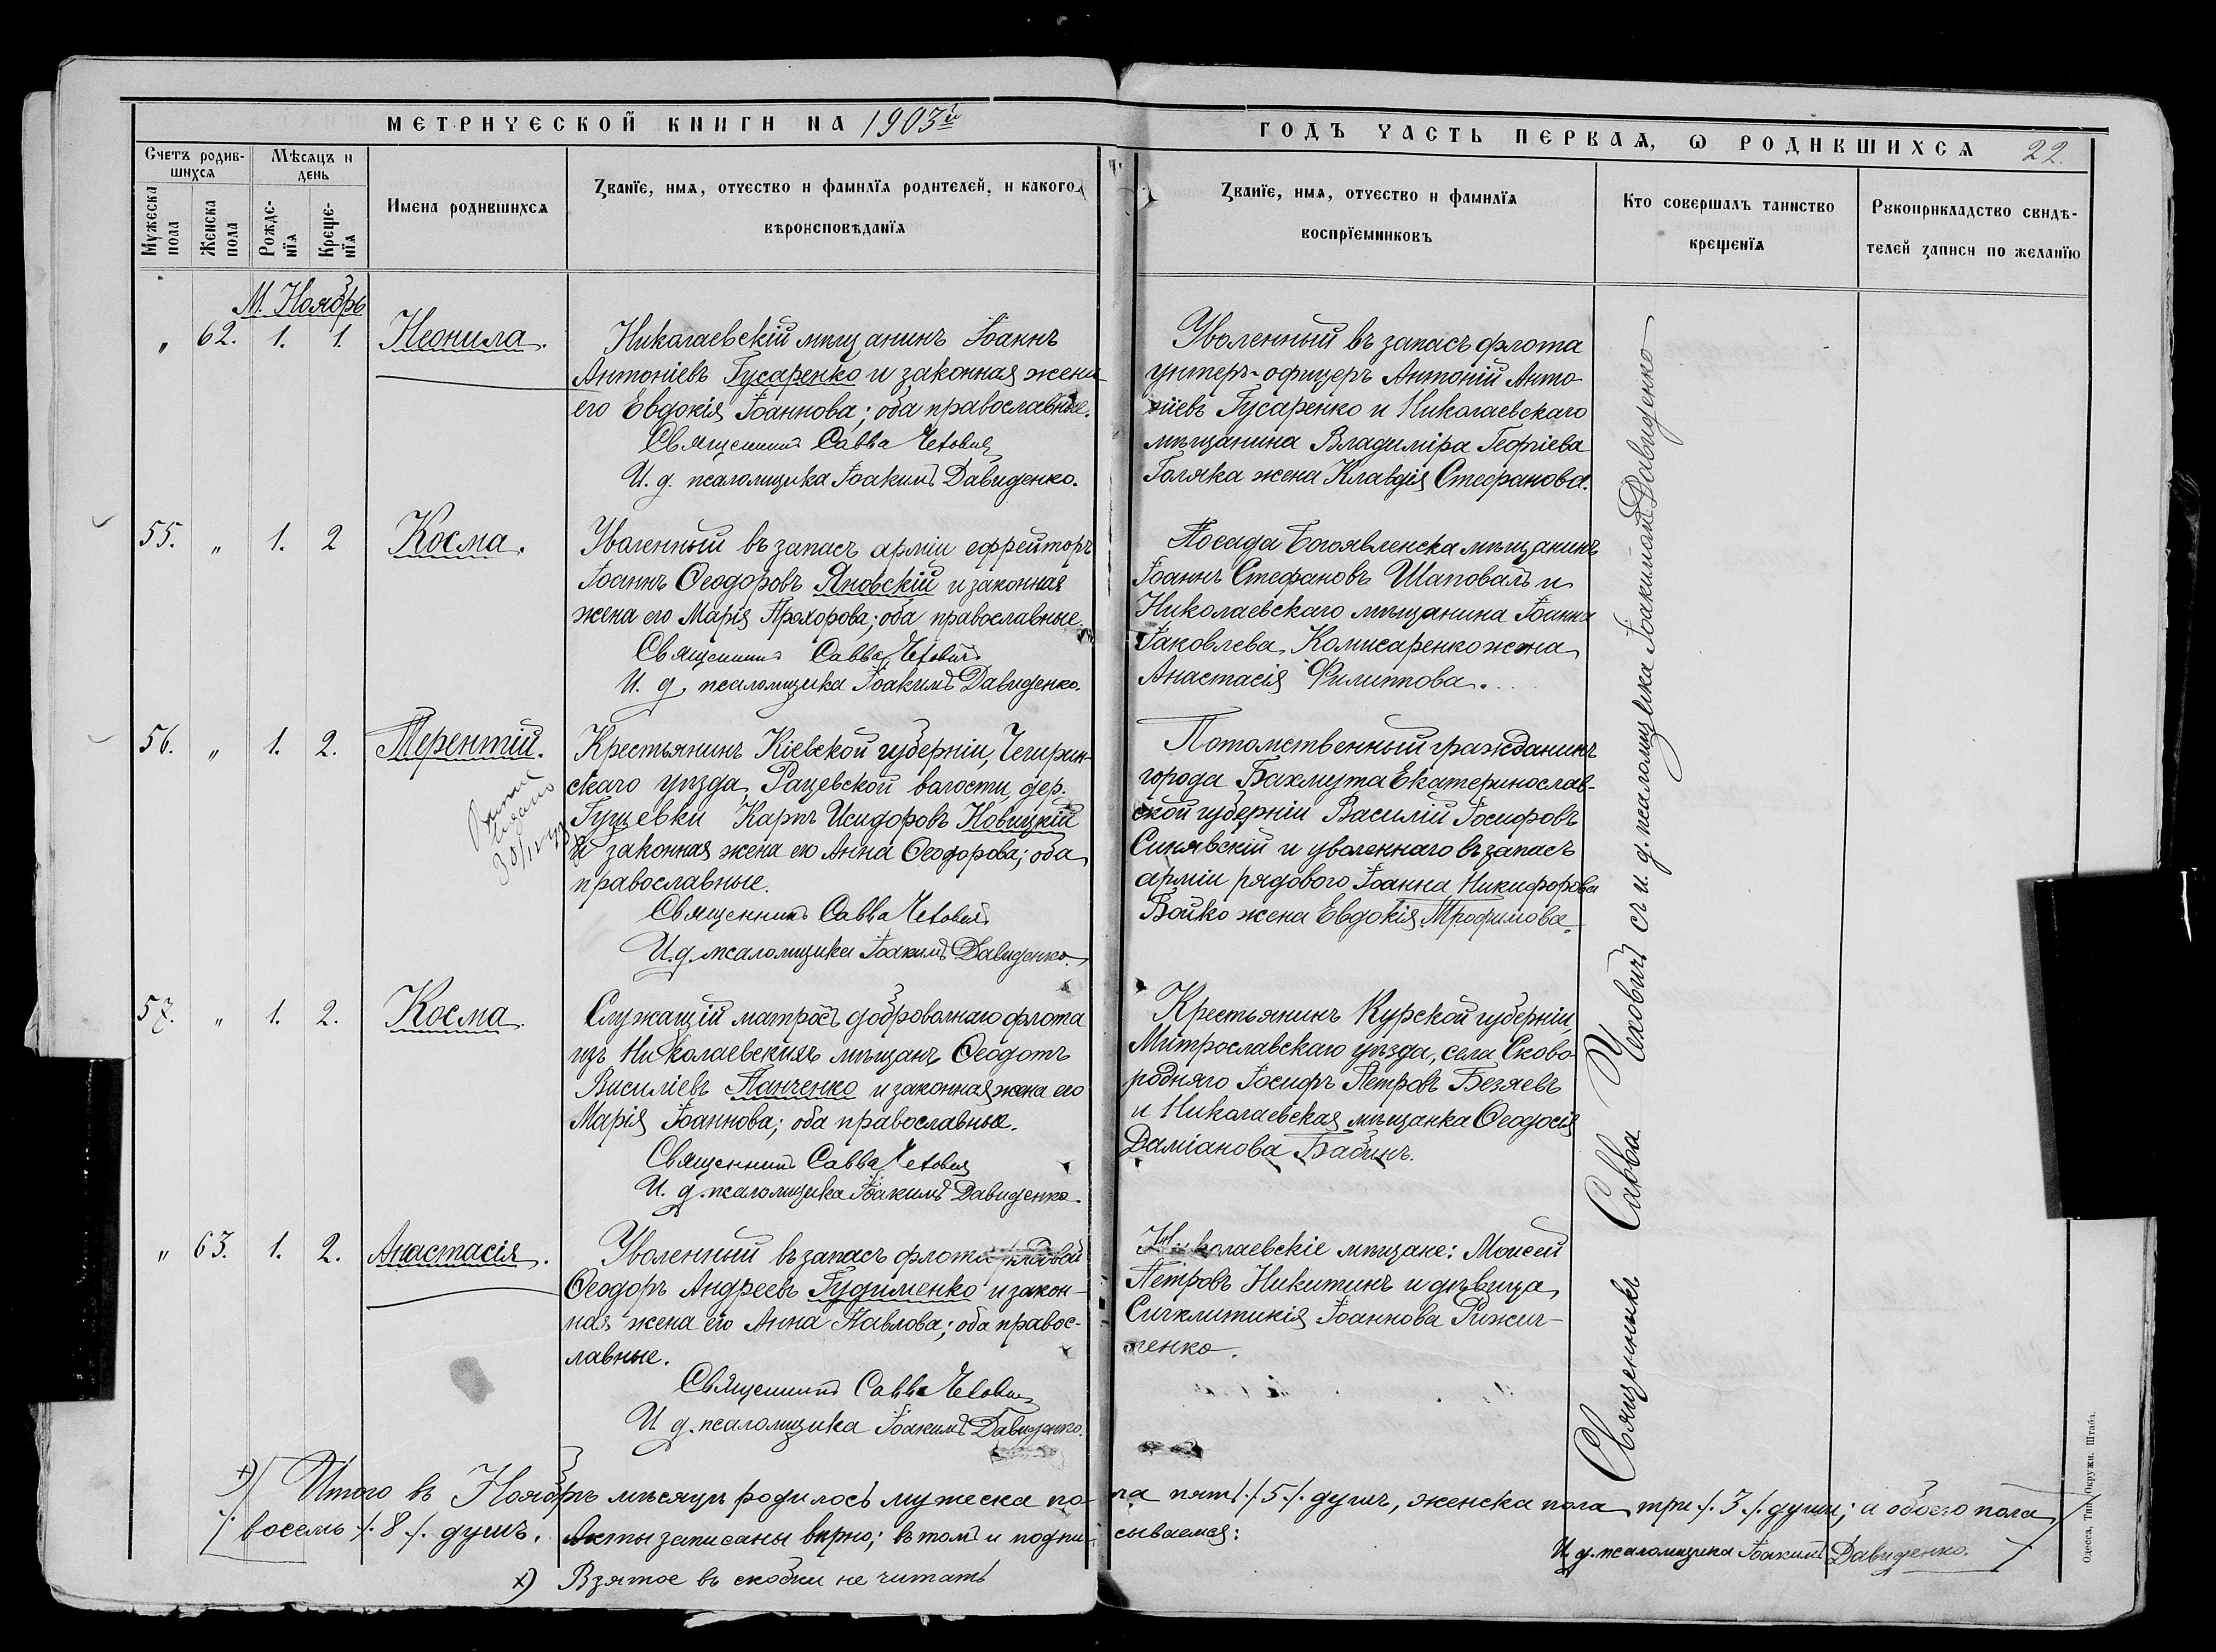 МЕТРИЧЕСКОЙ КНИГИ НА 1903й
ГОДЪ ЧАСТЬ ПЕРВАЯ, Ѡ РОДИВШИХСЯ 22.
Счетъ родив-
шихся
Мѣсяцъ и
день
Мужеска
пола
Женска
пола
Рожде-
нїя
Креще-
нїя
Имена родившихся
Званїе, имя, отчество и фамилїя родителей, и какого
вѣроисповѣданїя
Званїе, имя, отчество и фамилїя
воспрїемниковъ
Кто совершалъ таинство
крещенїя
Рукоприкладство свидѣ-
телей записи по желанїю
М. Ноябрь
„ 62. 1. 1. Неонила.
Николаевскій мѣщанинъ Іоаннъ
Антоніевъ Гусаренко и законная жена
его Евдокія Іоаннова; оба православные.
Священникъ Савва Чеховичъ
И. д. псаломщика Іоакимъ Давиденко.
Уволенный въ запасъ флота
унтеръ-офицеръ Антоній Анто-
ніевъ Гусаренко и Николаевскаго
мѣщанина Владиміра Георгіева
Голяка жена Клавдія Стефанова.
55. „ 1. 2 Косма.
Уволенный въ запасъ арміи ефрейторъ
Іоаннъ Ѳеодоровъ Яновскій и законная
жена его Марія Прохорова; оба православные.
Священникъ Савва Чеховичъ
И. д. псаломщика Іоакимъ Давиденко.
Посада Богоявленска мѣщанинъ
Іоаннъ Стефановъ Шаповалъ и
Николаевскаго мѣщанина Іоанна
Іаковлева Комисаренко жена
Анастасія Филиппова.
56. „ 1. 2. Терентій.
30/IV
Крестьянинъ Кіевской губерніи, Чигирин-
скаго уѣзда, Рацевской волости, дер.
Гущевки Карпъ Исидоровъ Новицкій
и законная жена его Анна Ѳеодорова; оба
православные.
Священникъ Савва Чеховичъ
И. д. псаломщика Іоакимъ Давиденко.
Потомственный гражданинъ
города Бахмута Екатеринослав-
ской губерніи Василій Іосифовъ
Синявскій и уволеннаго въ запасъ
арміи рядового Іоанна Никифорова
Бойко жена Евдокія Трофимова.
57. „ 1. 2. Косма.
Служащій матросъ добровольнаго флота
изъ Николаевскихъ мѣщанъ Ѳеодотъ
Василіевъ Панченко и законная жена его
Марія Іоаннова; оба православные.
Священникъ Савва Чеховичъ
И. д. псаломщика Іоакимъ Давиденко.
Крестьянинъ Курской губерніи,
Митрославскаго уѣзда, села Сково-
родняго Іосифъ Петровъ Безяевъ
и Николаевская мѣщанка Ѳеодосія
Даміанова Бабинъ.
„ 63. 1. 2. Анастасія.
Уволенный въ запасъ флота рядовой
Ѳеодоръ Андреевъ Гудименко и закон-
ная жена его Анна Павлова; оба правос-
лавные.
Священникъ Савва Чеховичъ
И д. псаломщика Іоакимъ Давиденко.
Николаевскіе мѣщане: Моисей
Петровъ Никитинъ и дѣвица
Синклитикія Іоаннова Рижич-
ченко.
Священникъ Савва Чеховичъ съ и. д. псаломщика Іоакимомъ Давиденко
х) Итого въ Ноябрѣ мѣсяцѣ родилось мужеска по-
ла пять /. 5 /. душъ, женска пола три /. 3 /. души; а обоего пола
восемь /. 8 /. душъ. Акты записаны вѣрно; въ томъ и подпи-
сываемся:
И. д. псаломщика Іоакимъ Давиденко.
х) Взятое въ скобки не читать
Одесса, Тип. Окружн. Штаба.